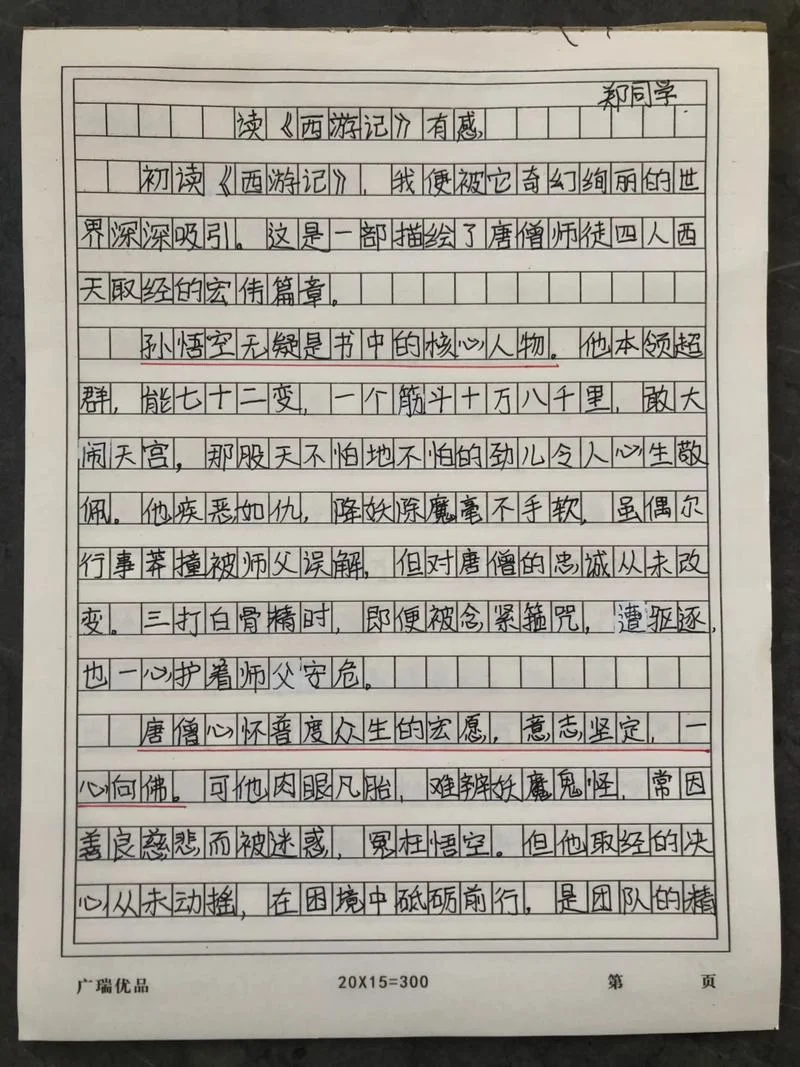 郑同学
读《西游记》有感
初读《西游记》，我便被它奇幻绚丽的世
界深深吸引。这是一部描绘了唐僧师徒四人西
天取经的宏伟篇章。
孙悟空无疑是书中的核心人物。他本领超
群，能七十二变，一个筋斗十万八千里，敢大
闹天宫，那股天不怕地不怕的劲儿令人心生敬
佩。他疾恶如仇，降妖除魔毫不手软，虽偶尔
行事莽撞被师父误解，但对唐僧的忠诚从未改
变。三打白骨精时，即便被念紧箍咒，遭驱逐，
也一心护着师父安危。
唐僧心怀普度众生的宏愿，意志坚定，一
心向佛。可他肉眼凡胎，难辨妖魔鬼怪，常因
善良慈悲而被迷惑，冤枉悟空。但他取经的决
心从未动摇，在困境中砥砺前行，是团队的精
广瑞优品 20X15=300 第 页